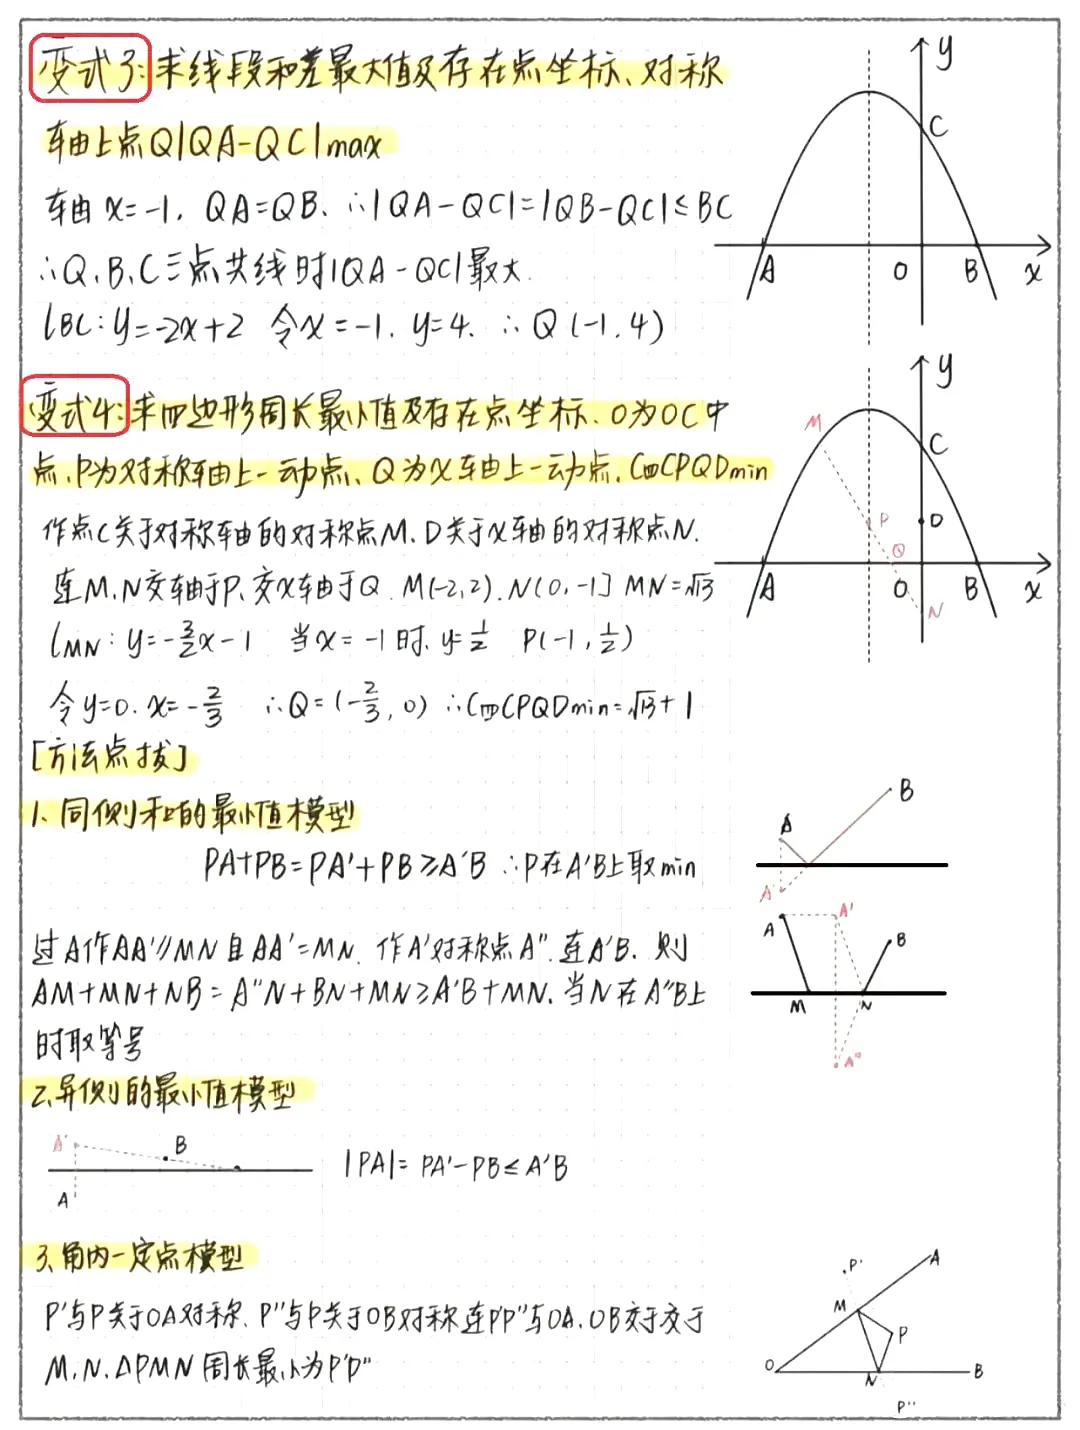 变式3:求线段和差最大值及存在点坐标、对称
轴上点Q|QA-QC|max
轴x=-1. QA=QB. ∴|QA-QC|=|QB-QC|≤BC
∴Q、B、C三点共线时|QA-QC|最大.
lBC:y=-2x+2 令x=-1. y=4. ∴Q(-1,4)
y
C
A
O
B
x
变式4:求四边形周长最小值及存在点坐标、D为OC中
点、P为对称轴上一动点、Q为x轴上一动点、C四CPQDmin
作点C关于对称轴的对称点M、D关于x轴的对称点N.
连M、N交轴于P、交x轴于Q. M(-2,2).N(0,-1] MN=√13
lMN:y=-3/2x-1 当x=-1时.y=1/2 P(-1,1/2)
令y=0.x=-2/3 ∴Q=(-2/3,0) ∴C四CPQDmin=√13+1
y
M
C
P
D
Q
A
O
B
x
N
[方法点拔]
1、同侧和的最小值模型
PA+PB=PA'+PB≥A'B ∴P在A'B上取min
A
B
A'
过A作AA'∥MN且AA'=MN. 作A'对称点A''.连A'B. 则
AM+MN+NB=A''N+BN+MN≥A'B+MN.当N在A''B上
时取等号
A
A'
B
M
N
A''
2、异侧的最小值模型
A'
B
A
|PA|=PA'-PB≤A'B
3、角内一定点模型
P'与P关于OA对称、P''与P关于OB对称连P'P''与OA、OB交于交于
M、N、△PMN周长最小为P'P''
P'
A
M
P
O
N
B
P''